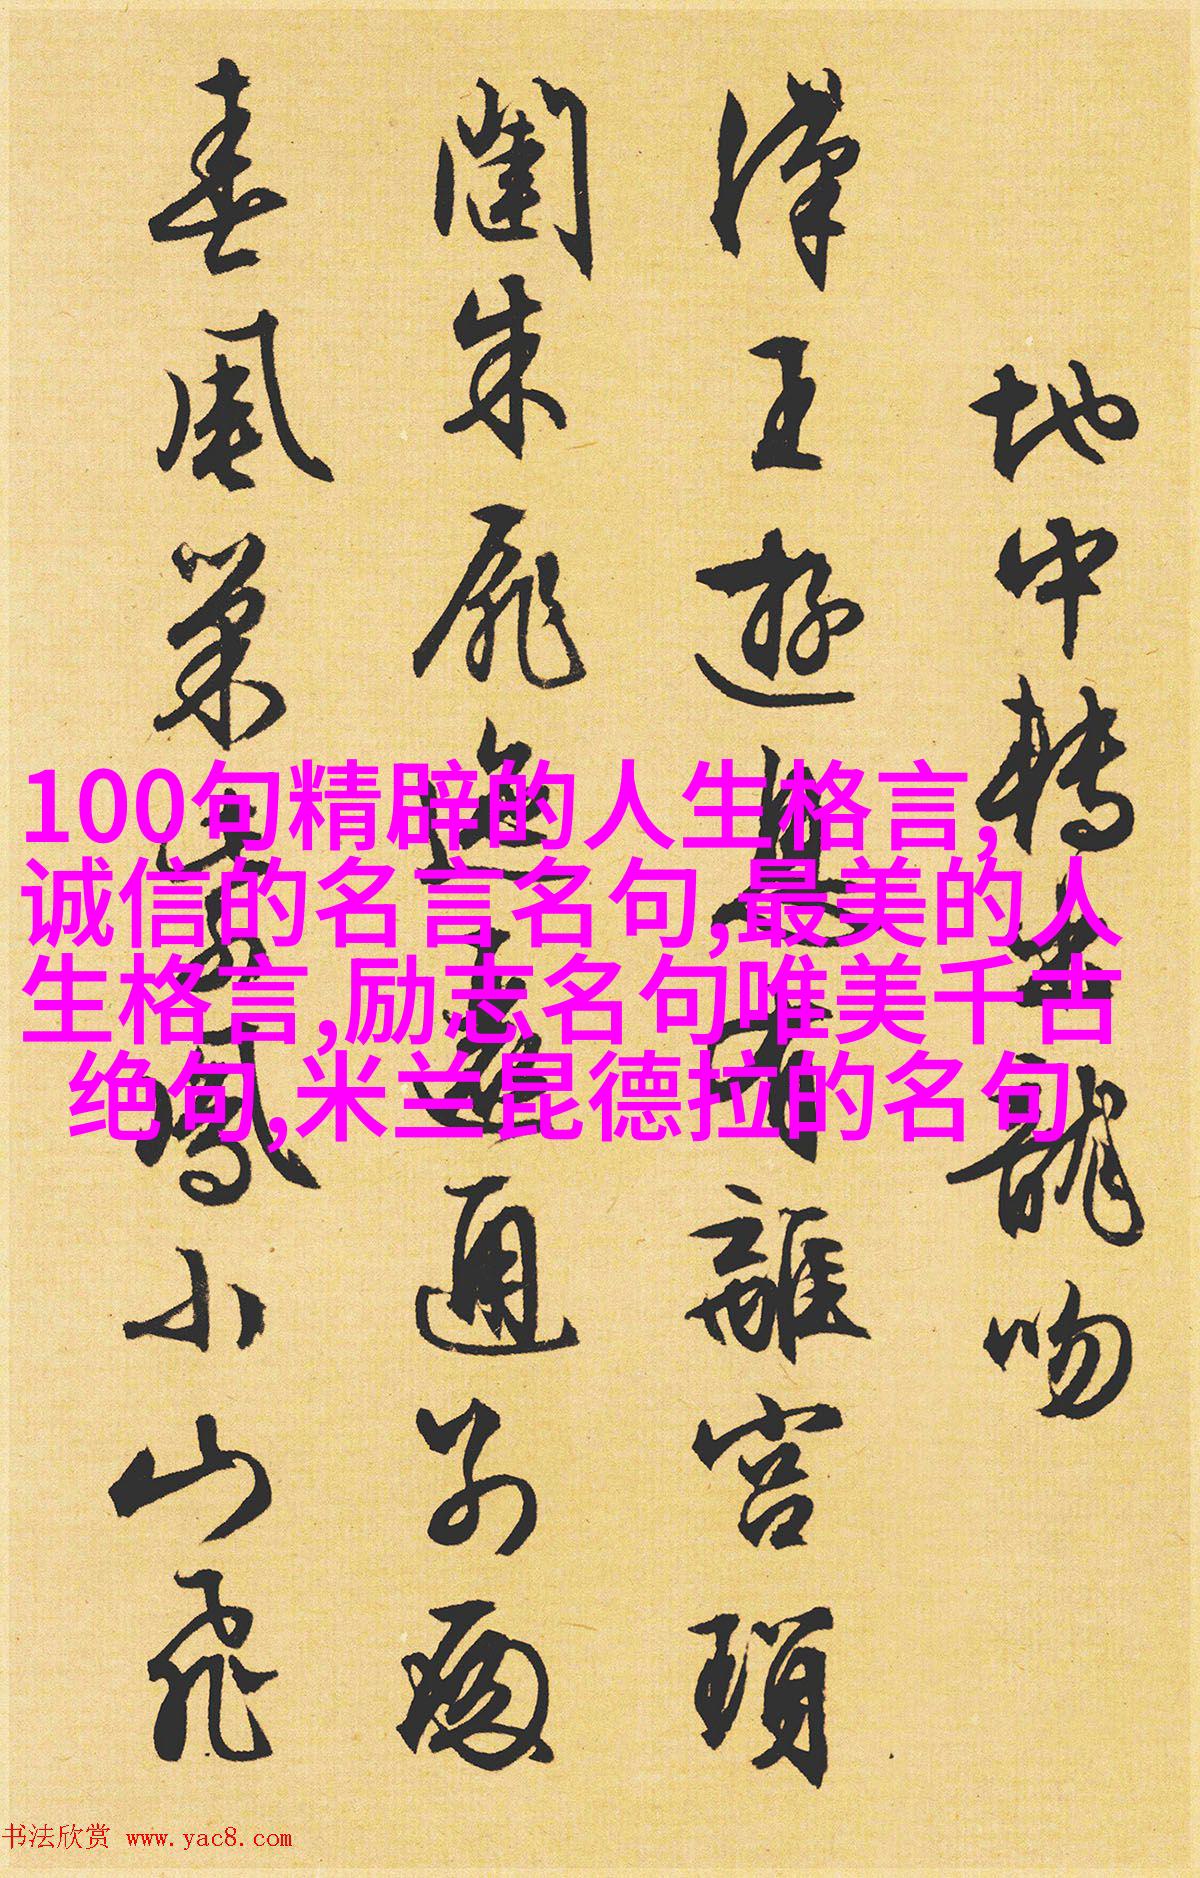 地中轉龍吻
漢王遊離宮瑣
闈朱扉通別
春風巢鳳小山飛
100句精辟的人生格言,
诚信的名言名句,最美的人
生格言,励志名句唯美千古
绝句,米兰昆德拉的名句
书法欣赏 www.yac8.com